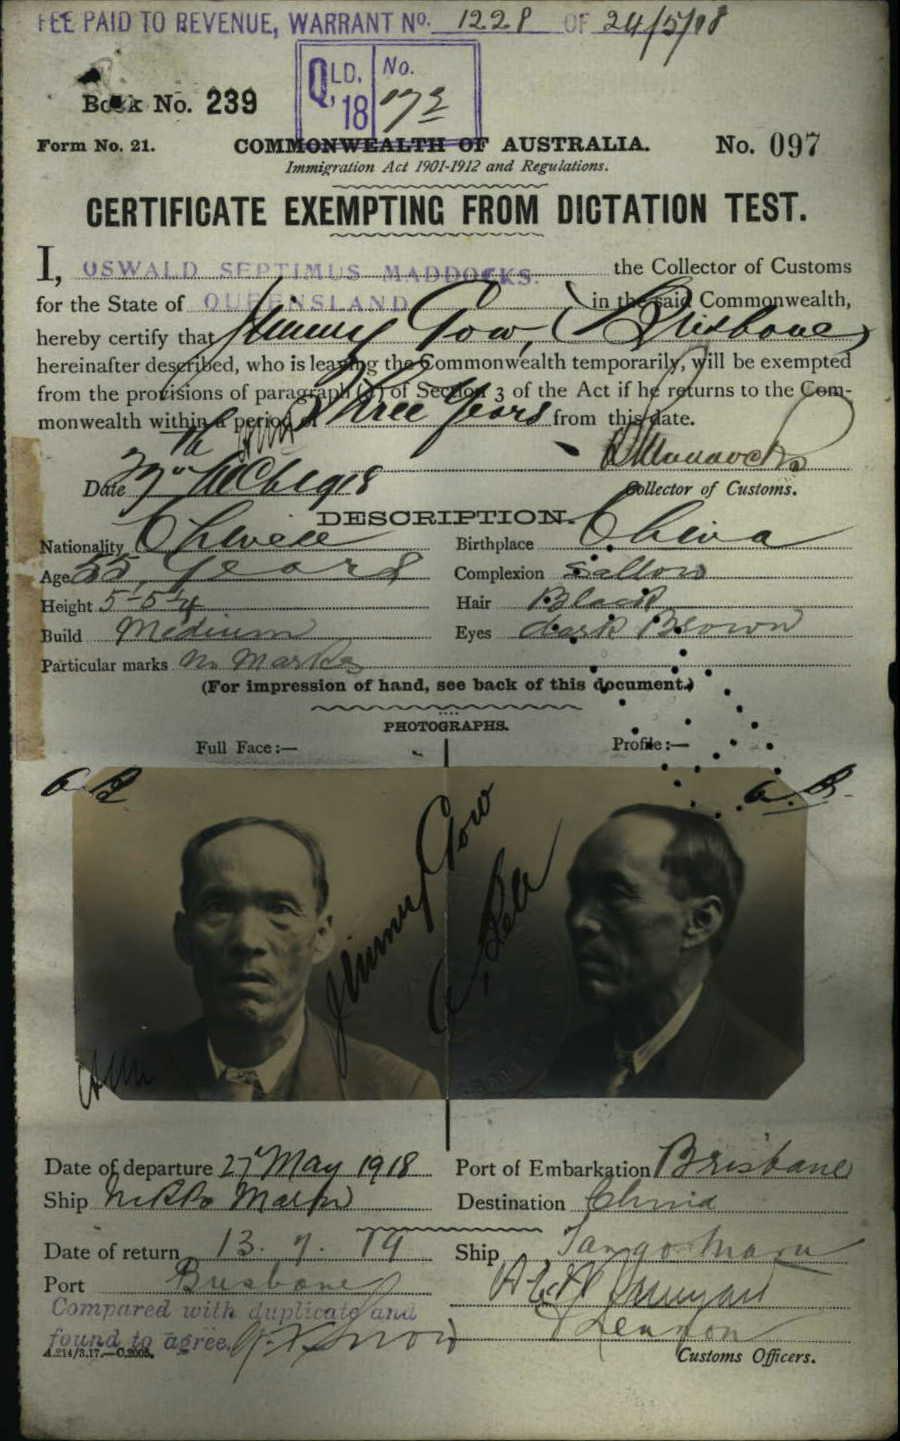 FEE PAID TO REVENUE, WARRANT No. 1228 OF 24/5/18
QLD. 18 No. 172
Book No. 239
Form No. 21. COMMONWEALTH OF AUSTRALIA. No. 097
Immigration Act 1901-1912 and Regulations.
CERTIFICATE EXEMPTING FROM DICTATION TEST.
I, OSWALD SEPTIMUS MADDOCKS. the Collector of Customs
for the State of QUEENSLAND in the said Commonwealth,
hereby certify that Jimmy Gow, (Brisbane)
hereinafter described, who is leaving the Commonwealth temporarily, will be exempted
from the provisions of paragraph (a) of Section 3 of the Act if he returns to the Com-
monwealth within a period of Three Years from this date.
Date 1918 Collector of Customs.
DESCRIPTION.
Nationality Chinese Birthplace China
Age 55 Years Complexion Sallow
Height 5-5¼ Hair Black
Build Medium Eyes dark Brown
Particular marks No Marks
(For impression of hand, see back of this document.)
PHOTOGRAPHS.
Full Face:— Profile:—
A.B. A.B.
Jimmy Gow
A. Bell
Date of departure 27 May 1918 Port of Embarkation Brisbane
Ship Nikko Maru Destination China
Date of return 13. 7. 19 Ship Tango Maru
Port Brisbane
Compared with duplicate and
found to agree.
A.214/3.17.—C.2005. Customs Officers.